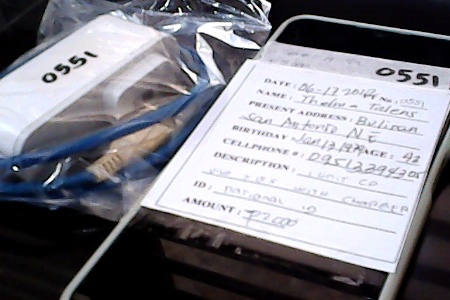 0551
0551
DATE: 06-17-2024 No: 0551
NAME: Thelma Talens
PRESENT ADDRESS: Buliran
San Antonio N E
BIRTHDAY Jan 13 1979 AGE: 42
CELLPHONE #: 09513394305
DESCRIPTION: CP
WITH CHARGER
ID: NATIONAL ID
AMOUNT: